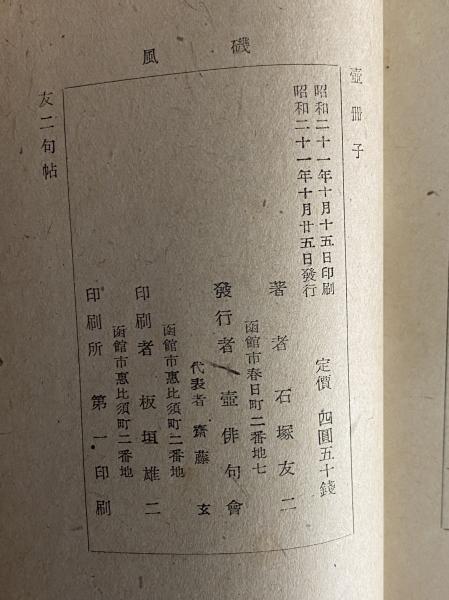 壺冊子
磯風
友二句帖
昭和二十一年十月十五日印刷
昭和二十一年十月廿五日發行
定價 四圓五十錢
著者 石塚友二
函館市春日町二番地七
發行者 壺俳句會
代表者 齋藤玄
函館市惠比須町二番地
印刷者 板垣雄二
函館市惠比須町二番地
印刷所 第一印刷